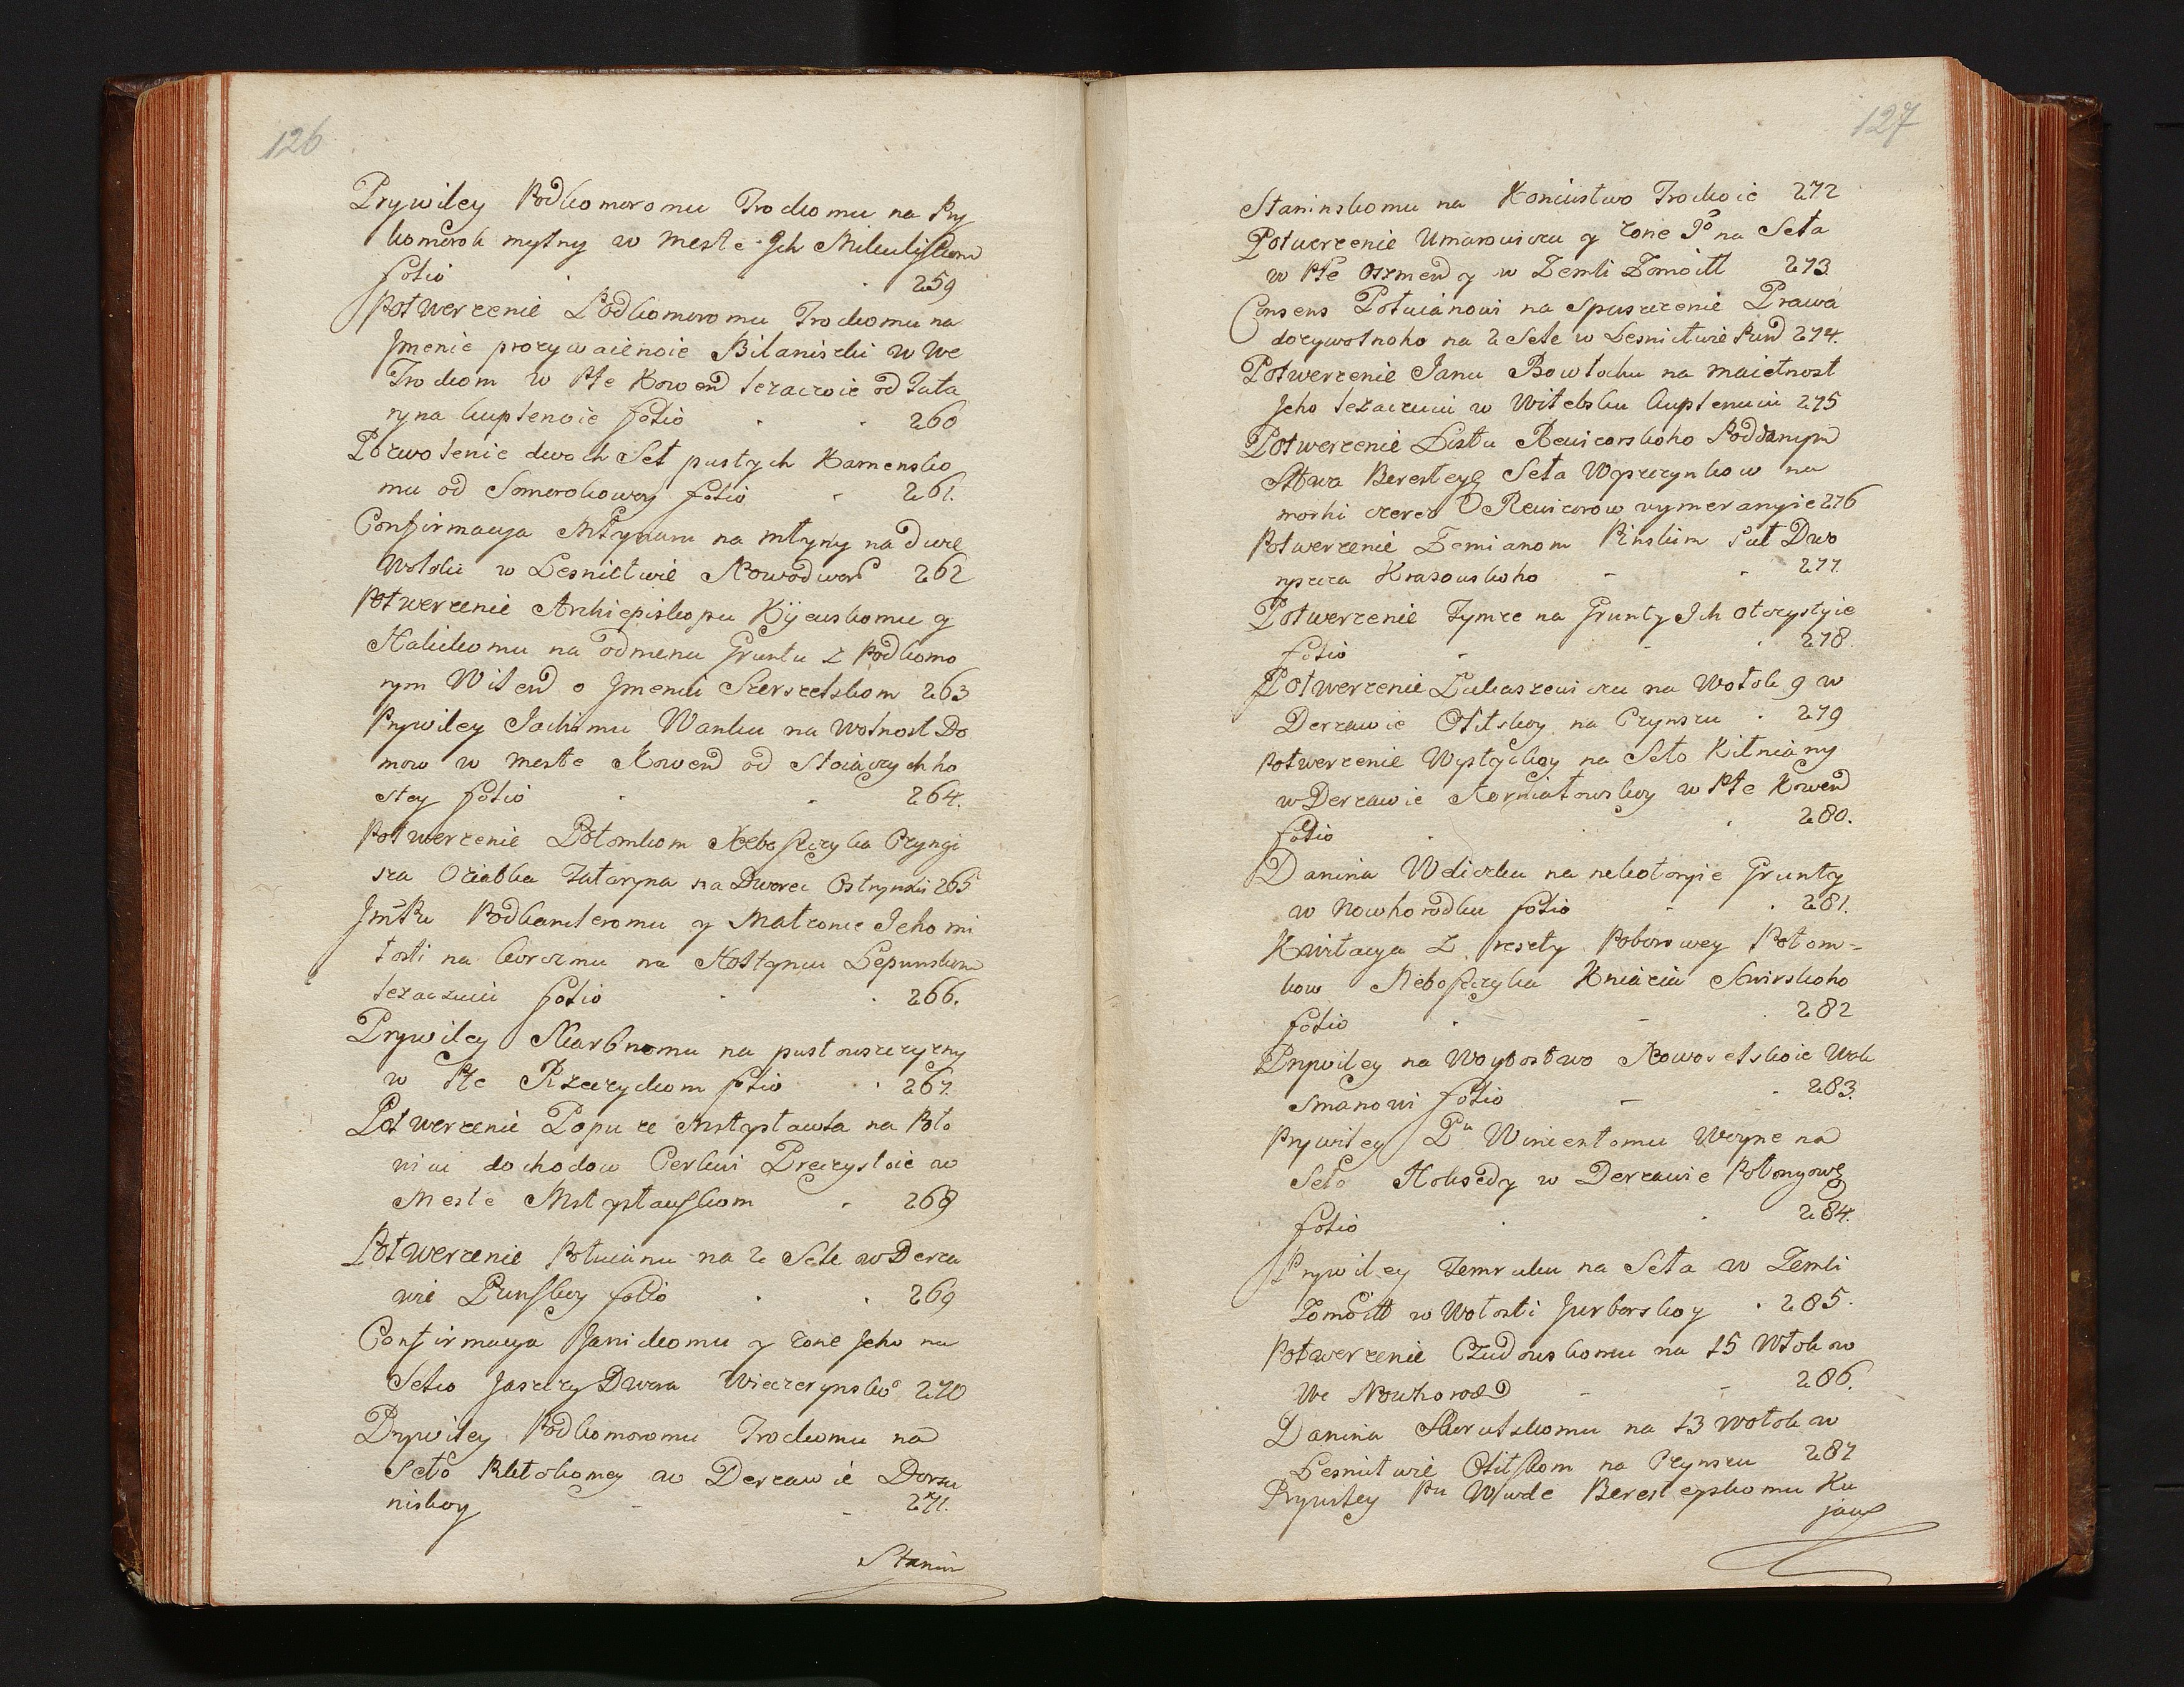 126
Prywiley Podkomoromu Trockomu na Pry
komorok mytny w meste Jch Mikuliskom
folio 259
Potwerzenie Podkomoromu Trockomu na
Jmenie prozywaienoie Bilaniszki w we
Trockom w Pte Kowen lezaczoie od Tata
ryna kuplenoie folio 260
Pozwolenie dwoch Seł pustych Kamensko
mu od Somorokowoy folio 261.
Confirmacya Młynaru na młyny na dwe
Wołoki w Lesnictwie Nowodwor 262
Potwerzenie Archiepiskopu Kijewskomu y
Halickomu na odmenu Gruntu z Podkomo
rym Wilen o Jmenie Szerszelskom 263
Prywiley Jachimu Wanku na wolnost Do
mow w meste Kowen od Stoiaczych ho
stey folio 264.
Potwerzenie Potomkom Neboszczyka Czyngi
sza Oziabka Tataryna na Dworec Ostrynskii 265
JmP Podkancleromu y Małzonce Jeho mi
łosti na korczmu na Hostyncu Lepunskom
lezaczuiu folio 266.
Prywiley Skarbnomu na pustowszczyzny
w Pte Rzeczyckom folio 267.
Potwerzenie Popu ze Mstysławla na Poło
wicu dochodow Cerkwi Preczystoie w
Meste Mstysławskom 268
Potwerzenie Pocianu na 2 Sele w Derza
wie Punskoy folio 269
Confirmacya Janickomu y zone Jeho na
Selco Jaszczy Dwora Wieczerynsko 270
Prywiley Podkomoromu Trockomu na
Seło Kletokomey w Derzawie Dorsu
niskoy 271.
Stanin
127
Staninskomu na Koniustwo Trockoie 272
Potwerzenie Umarowiczu y zone Jo na Seła
w Pte Oszmen y w Zemli Zomoitt 273.
Consens Połuianowi na Spuszczenie Prawa
dozywotnoho na 2 Sele w Lesnictwie Rud 274.
Potwerzenie Janu Bowłochu na maietnost
Jeho lezaczuiu w Witebsku kuplenuiu 275
Potwerzenie Listu Rewizorskoho Poddanym
Stwa Beresteys Seła Wyszczynkow na
morhi czerez Rewizorow vymeranyie 276
Potwerzenie Zemianom Pinskim Sul Dwo
ryszcza Krasowskoho 277.
Potwerzenie Tymze na Grunty Jch otczystyie
folio 278.
Potwerzenie Lukaszewiczu na Wołok 9 w
Derzawie Olitskoy na Czynszu 279
Potwerzenie Wystyckoy na Seło Kilniany
w Derzawie Korniałowskoy w Pte Kowen
folio 280.
Danina Weliczku na nekotoryie Grunty
w Nowhorodku folio 281.
Kwitacya z reszty Poborowey Potom=
kow Neboszczyka Kniazia Swirskoho
folio 282
Prywiley na Woytostwo Nowoselskoie Wol
smanowi folio 283.
Prywiley Pu Wincentomu Woyne na
Seło Hoksedy w Derzawie Połongows
folio 284.
Prywiley Temruku na Seła w Zemli
Zomoitt w Wołosti Jurborskoy 285.
Potwerzenie Czudowskomu na 15 Włok w
We Nowhorod 286.
Danina Skorulskomu na 13 wołok w
Lesnictwie Olitskom na Czynszu 287
Prywiley Pu Wwde Beresteyskomu Ku
jaws